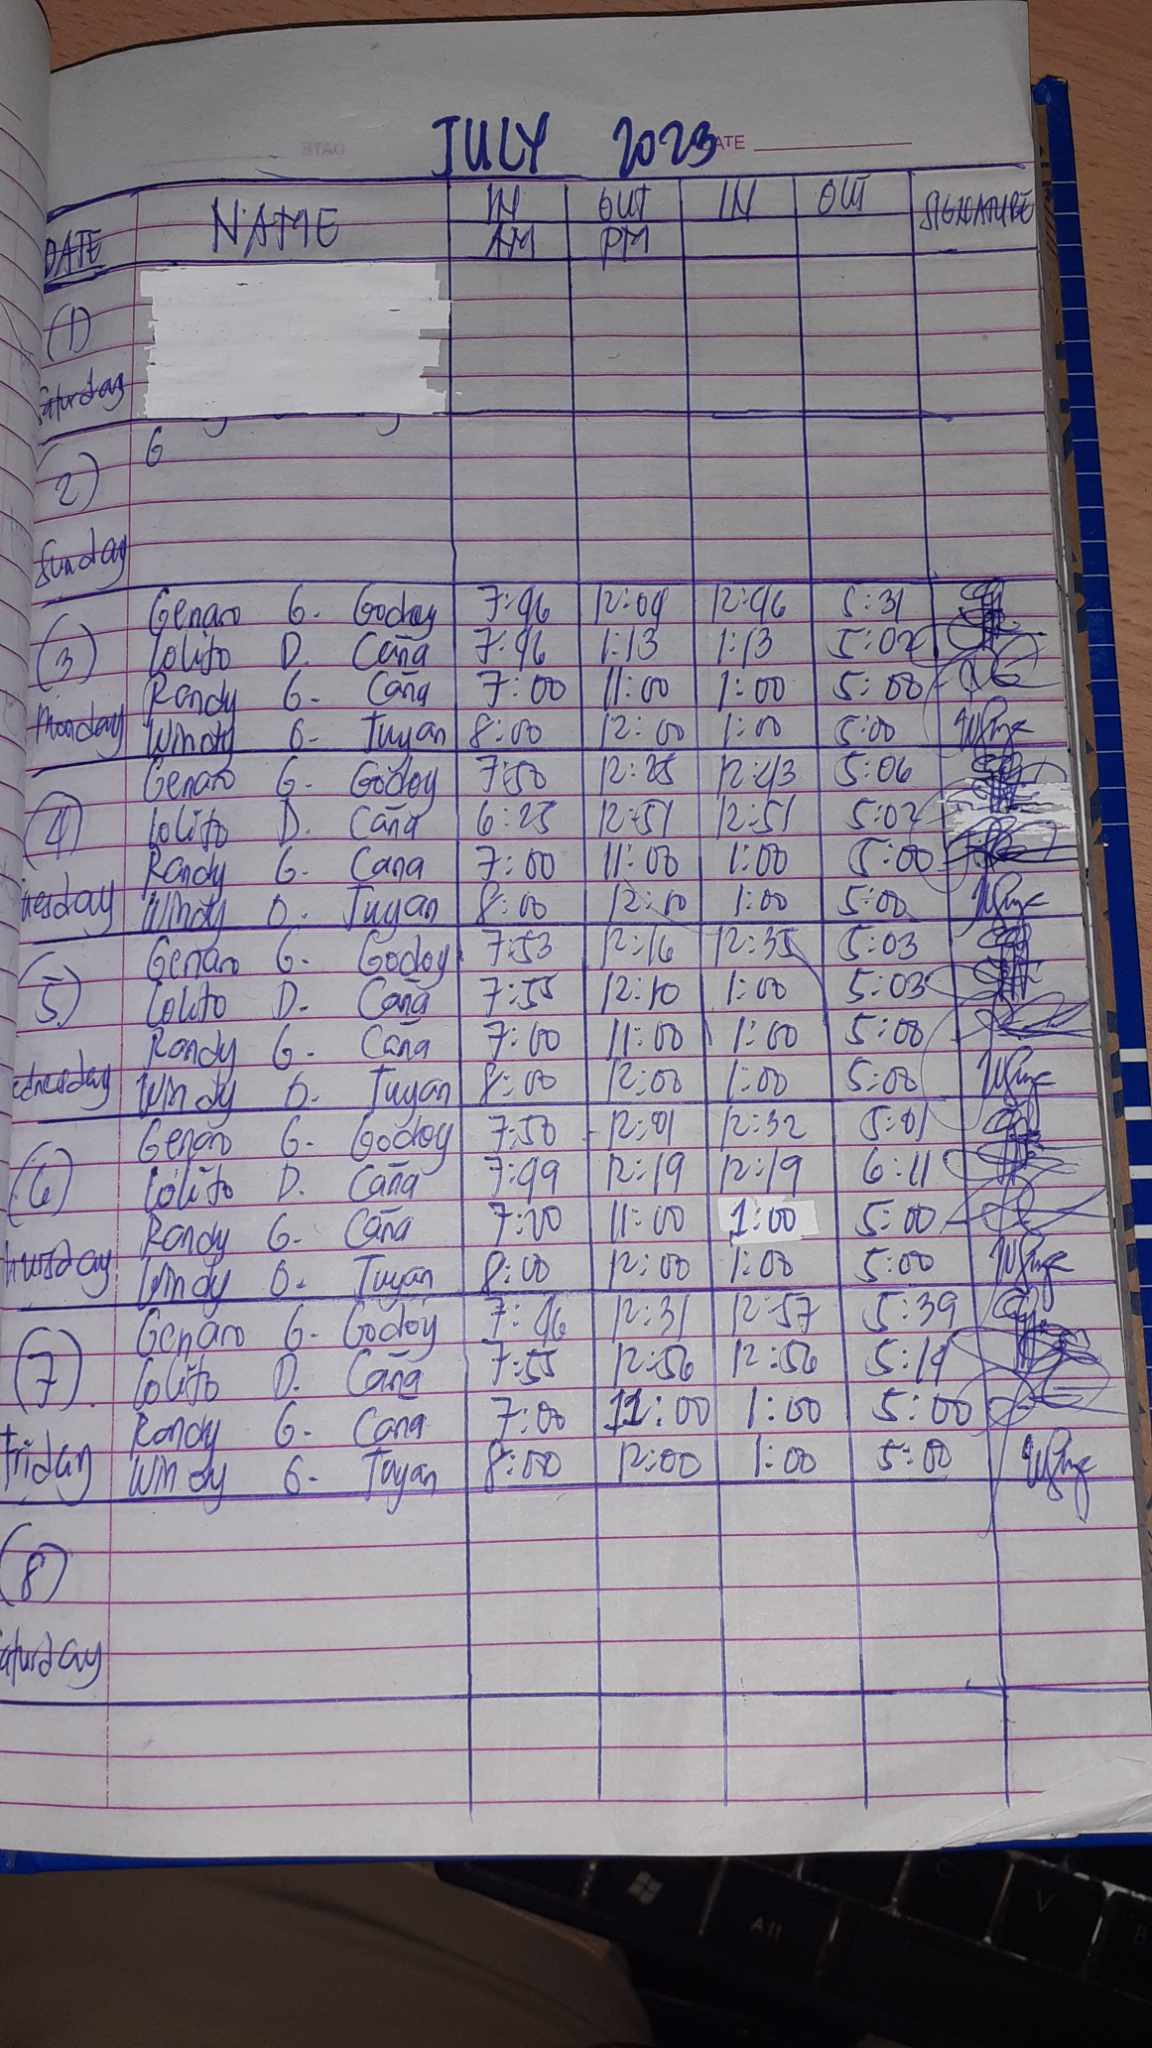 JULY 2023
DATE
DATE NAME IN OUT IN OUT SIGNATURE
AM PM
(1)
Saturday
(2) G
Sunday
Genaro G. Godoy 7:46 12:04 12:46 5:31
(3) Lolito D. Caña 7:46 1:13 1:13 5:02
Randy G. Caña 7:00 11:00 1:00 5:00
Monday Windy G. Tuyan 8:00 12:00 1:00 5:00
Genaro G. Godoy 7:50 12:25 12:43 5:06
(4) Lolito D. Caña 6:25 12:51 12:51 5:02
Randy G. Cana 7:00 11:00 1:00 5:00
uesday Windy O. Tuyan 8:00 12:00 1:00 5:00
Genaro G. Godoy 7:53 12:16 12:35 5:03
(5) Lolito D. Caña 7:55 12:10 1:00 5:03
Randy G. Caña 7:00 11:00 1:00 5:00
ednesday Windy O. Tuyan 8:00 12:00 1:00 5:00
Genaro G. Godoy 7:50 12:01 12:32 5:01
(6) Lolito D. Caña 7:49 12:19 12:19 6:11
Randy G. Caña 7:00 11:00 1:00 5:00
hursday Windy O. Tuyan 8:00 12:00 1:00 5:00
Genaro G. Godoy 7:46 12:31 12:57 5:39
(7) Lolito D. Caña 7:55 12:56 12:56 5:19
Randy G. Cana 7:00 11:00 1:00 5:00
Friday Windy G. Tuyan 8:00 12:00 1:00 5:00
(8)
aturday
Alt
C
V
B